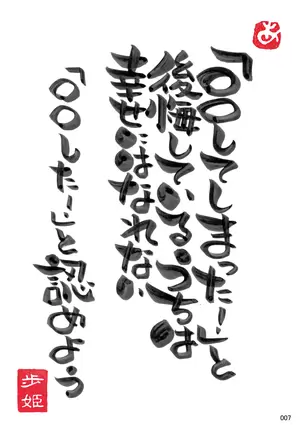 あ
「〇〇してしまった!」と
後悔している。うちは
幸せにはなれない
「〇〇した!」と認めよう
歩姫
007